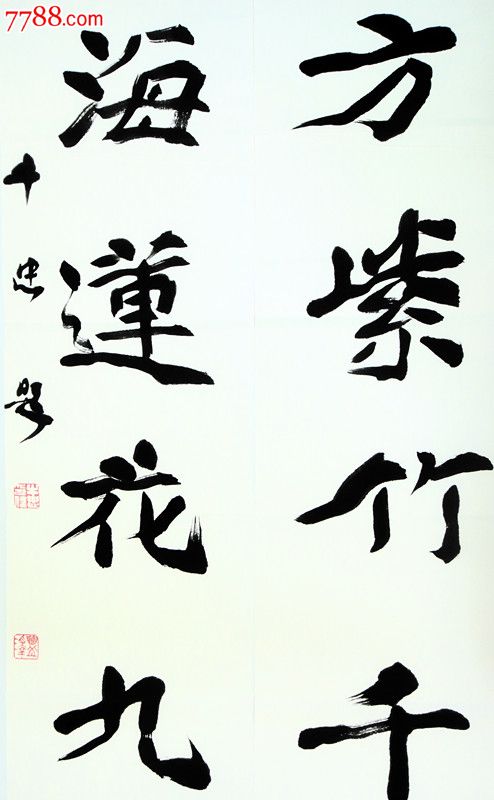 7788.com
方紫竹千
海蓮花九
忠